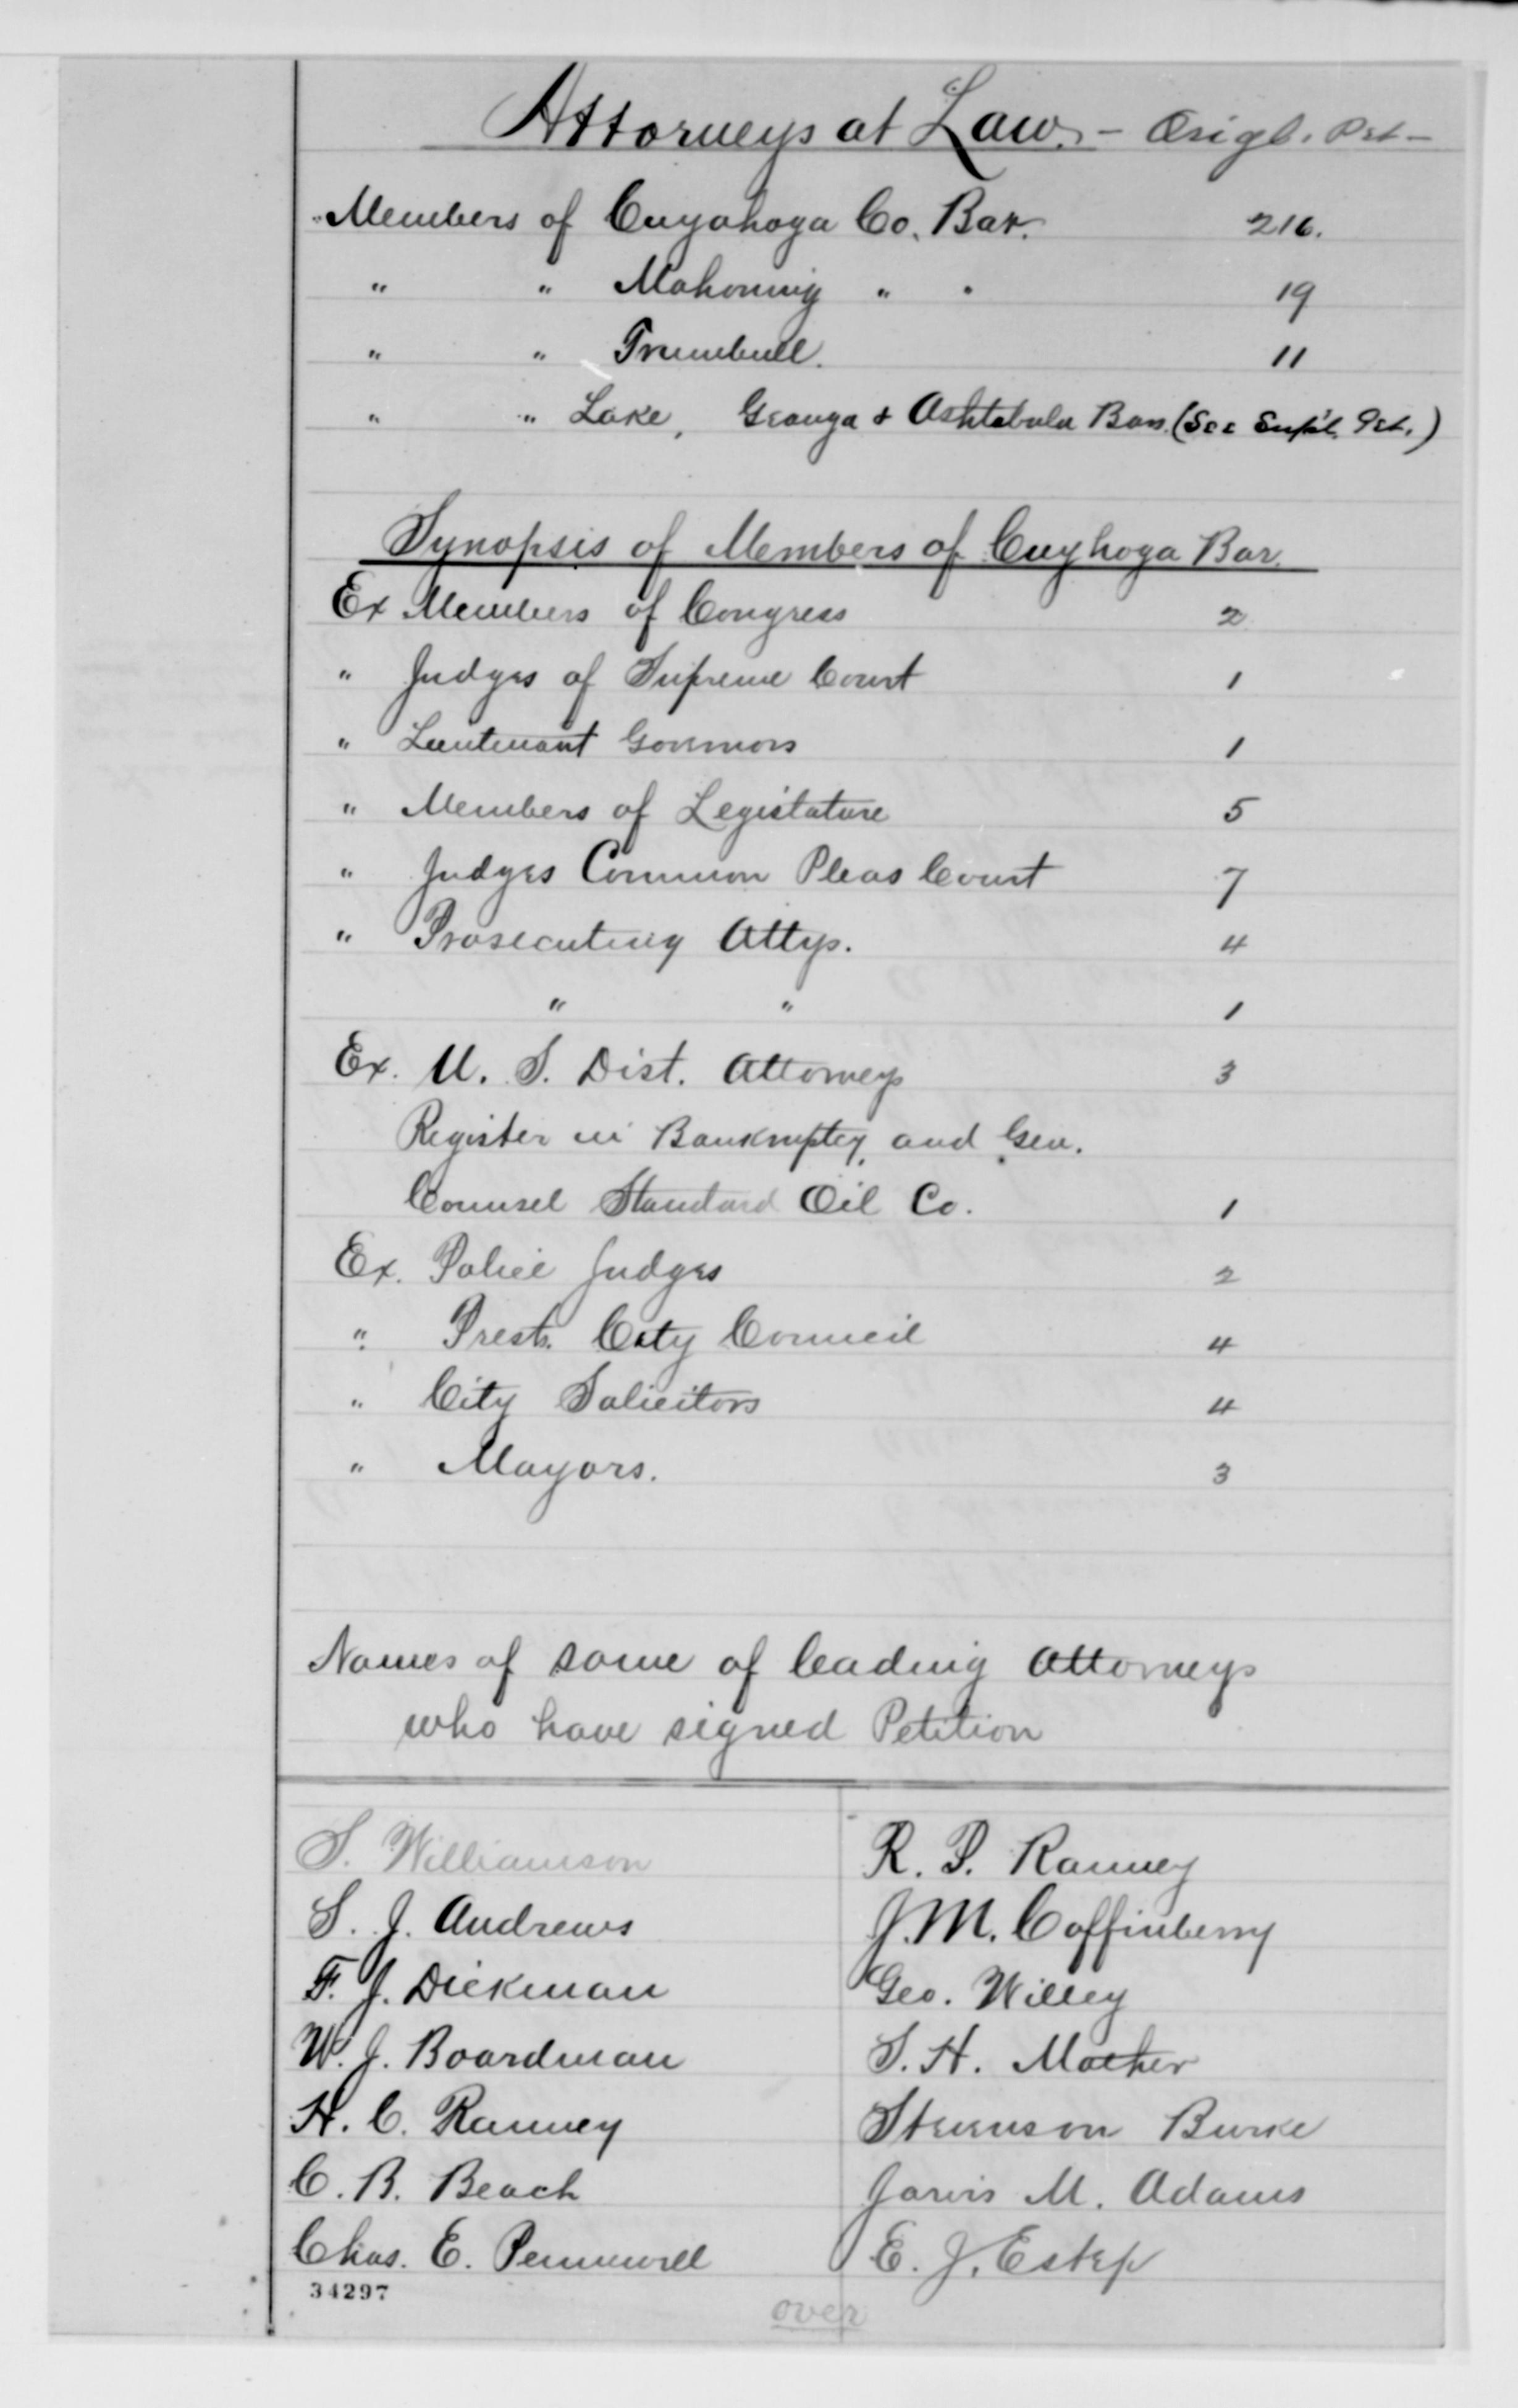 Attorneys at Law. - Origl. Pet -
Members of Cuyahoga Co. Bar. 216.
" " Mahoning " " 19
" " Trumbull. 11
" " Lake, Geauga & Ashtabula Bars. (See Sup'l. Pet.)
Synopsis of Members of Cuyhoga Bar.
Ex Members of Congress 2
" Judges of Supreme Court 1
" Lieutenant Governors 1
" Members of Legislature 5
" Judges Common Pleas Court 7
" Prosecuting Attys. 4
" " 1
Ex. U. S. Dist. Attorneys 3
Register in Bankruptcy, and Gen.
Counsel Standard Oil Co. 1
Ex. Police Judges 2
" Prests. City Council 4
" City Solicitors 4
" Mayors. 3
Names of some of leading Attorneys
who have signed Petition
S. Williamson R. P. Ranney
S. J. Andrews J. M. Coffinberry
F. J. Dickman Geo. Willey
W. J. Boardman S. H. Mather
H. C. Ranney Stevenson Burke
C. B. Beach Jarvis M. Adams
Chas. E. Pennewell E. J. Estep
34297
over